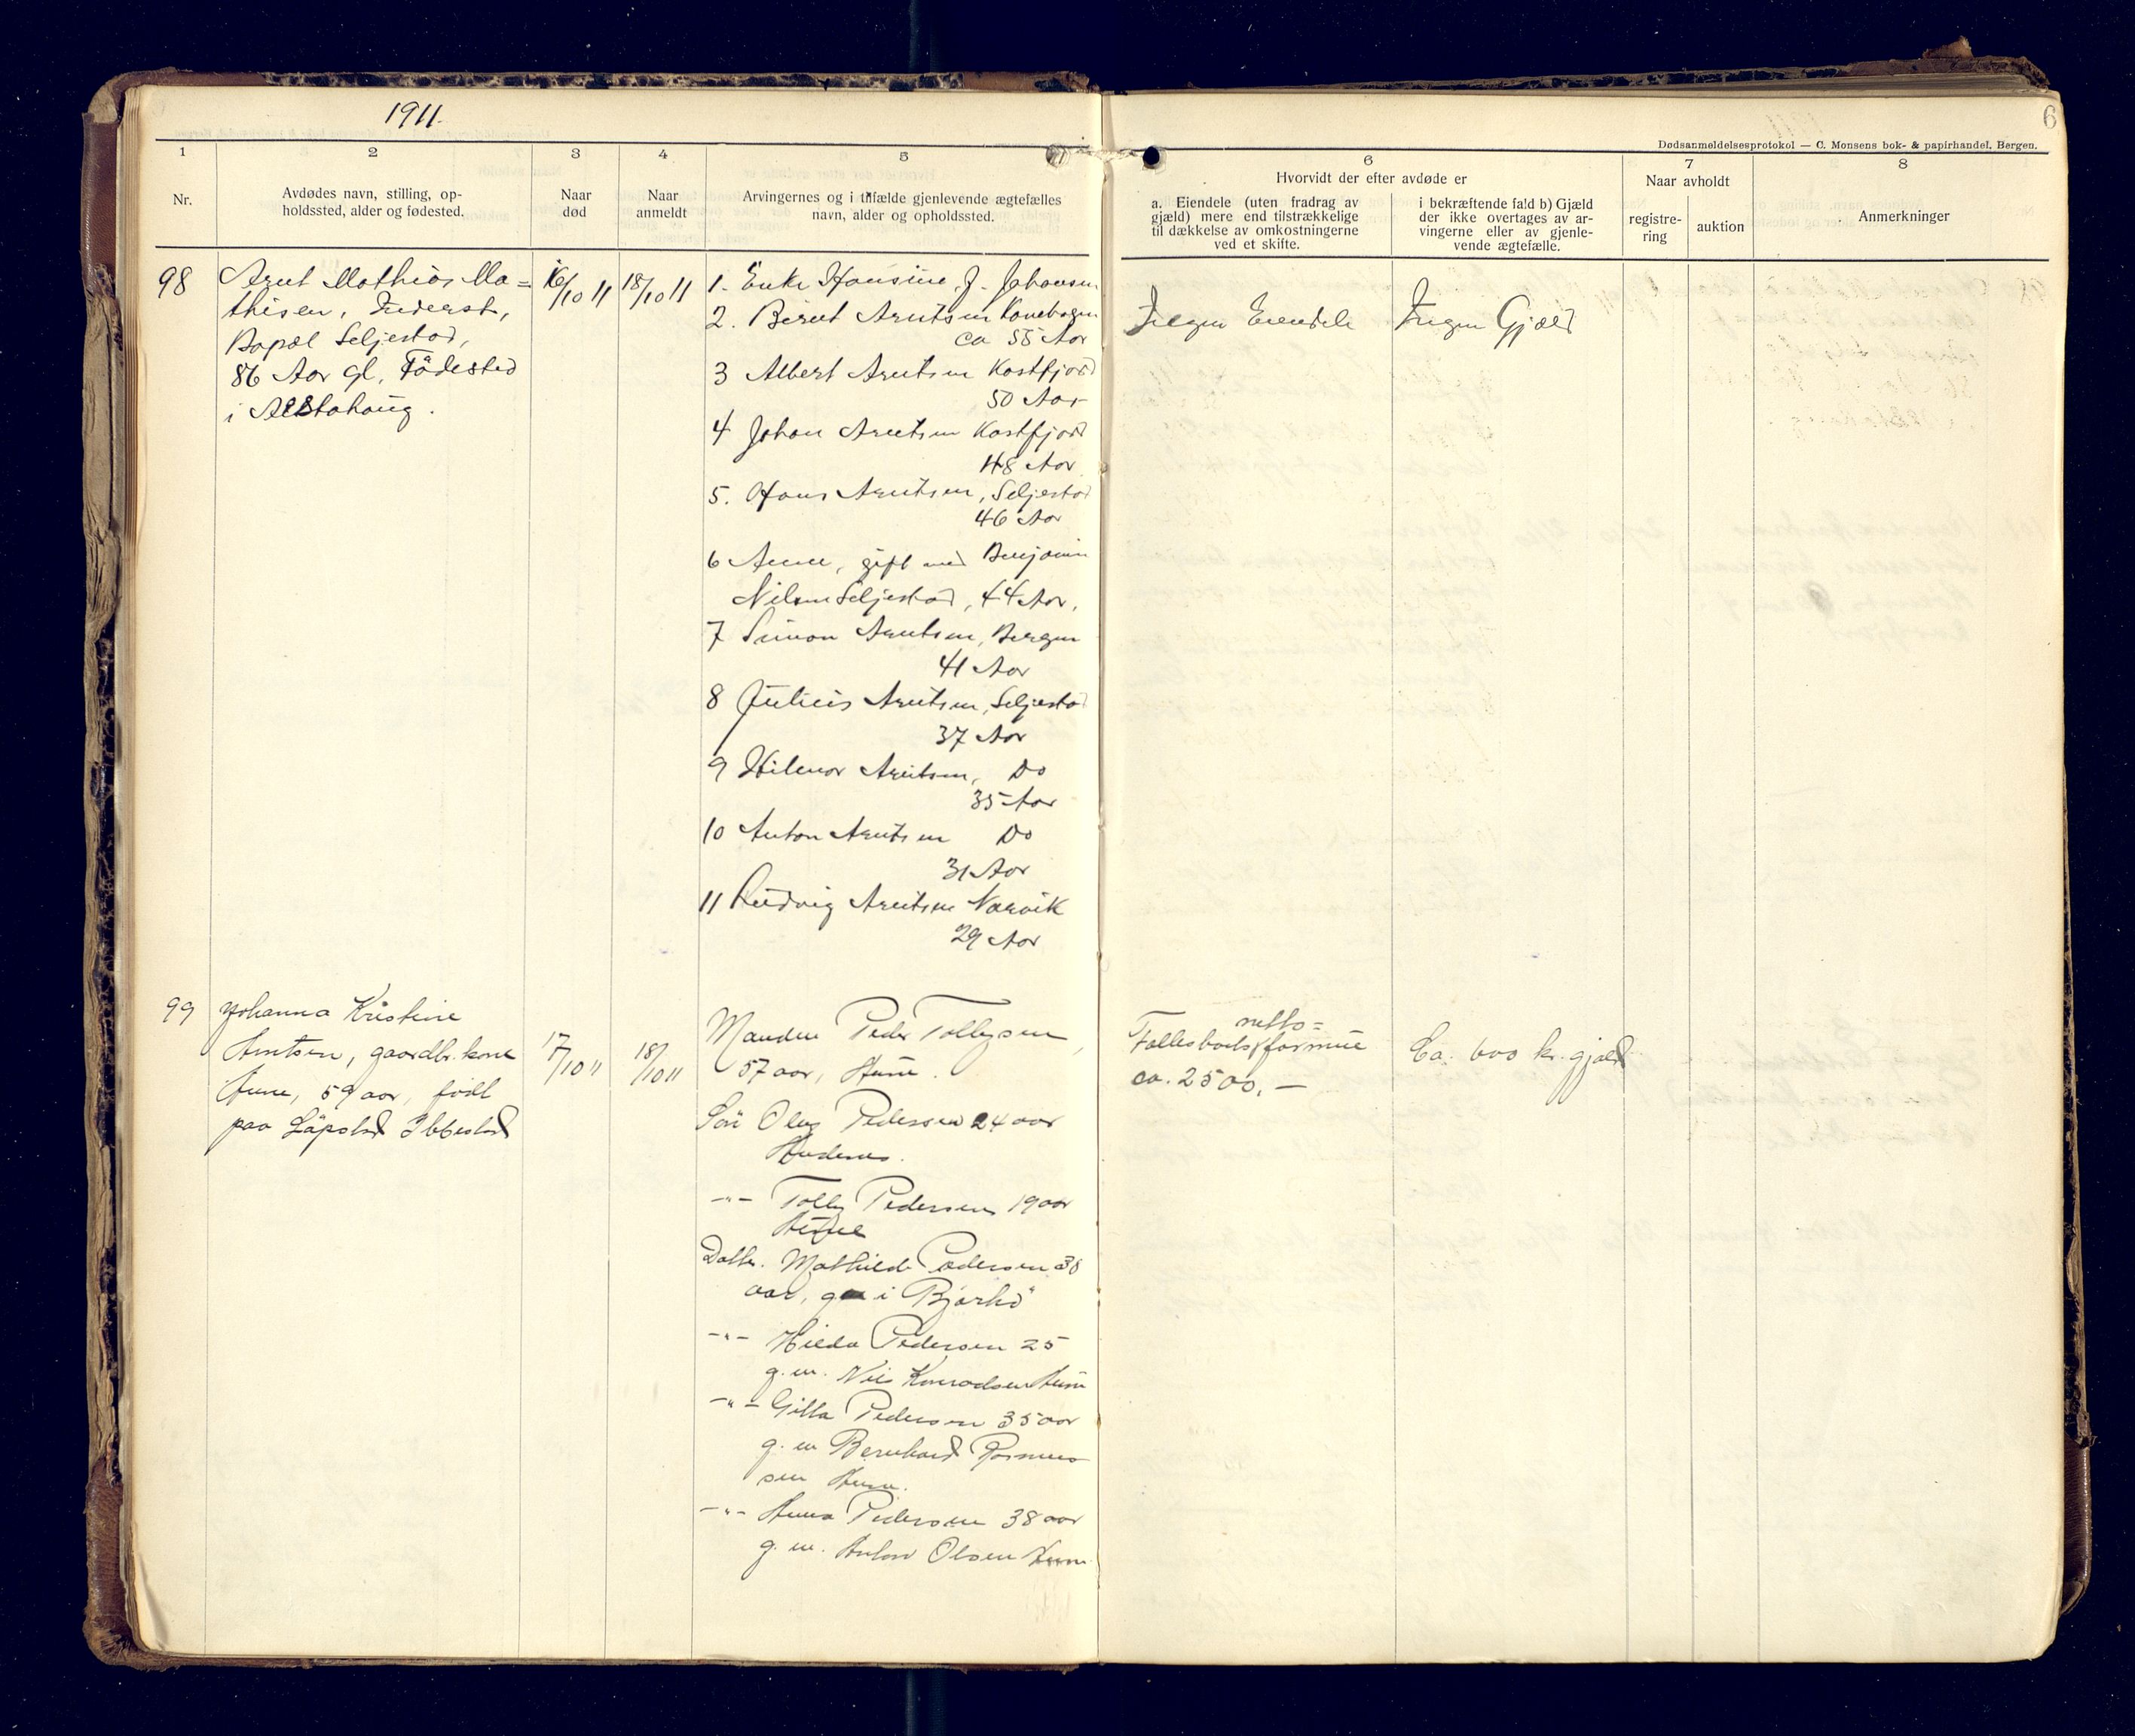 1911.
6
Dødsanmeldelsesprotokol — C. Monsens bok- & papirhandel, Bergen.
1
Nr.
2
Avdødes navn, stilling, op-
holdssted, alder og fødested.
3
Naar
død
4
Naar
anmeldt
5
Arvingernes og i tilfælde gjenlevende ægtefælles
navn, alder og opholdssted.
6
Hvorvidt der efter avdøde er
a. Eiendele (uten fradrag av
gjæld) mere end tilstrækkelige
til dækkelse av omkostningerne
ved et skifte.
i bekræftende fald b) Gjæld
der ikke overtages av ar-
vingerne eller av gjenle-
vende ægtefælle.
7
Naar avholdt
registre-
ring
auktion
8
Anmerkninger
98
Arnt Mathias Ma=
thisen, Inderst,
Seljestad,
86 Aar gl, Födested
i Alstahaug.
16/10 11
18/10 11
1. Enke Hansine J. Johansen
2. Bernt Arntsen Kanebogen
ca 55 Aar
3 Albert Arntsen Kastfjord
50 Aar
4 Johan Arntsen Kastfjord
48 Aar
5. Hans Arntsen, Seljestad
46 Aar
6 Anne, gift med Benjamin
Nilsen Seljestad, 44 Aar,
7 Simon Arntsen, Bergen
41 Aar
8 Julius Arntsen, Seljestad
37 Aar
9 Hilmar Arntsen, Do
35 Aar
10 Anton Arntsen Do
31 Aar
11 Ludvig Arntsen Narvik
29 Aar
Ingen Eiendele
Ingen Gjæld
99
Johanna Kristine
Arntsen, gaardbr. kone
Aune, 59 aar, født
paa Ibbestad
17/10 11
18/10 11
Manden Peder Tollefsen,
57 aar, Aune.
Sön Olaf Pedersen 24 aar
Andenes.
-"- Pedersen 19 aar
Aune
Datter. Mathilde Pedersen 38
aar, g. i Bjarkö
-"- Hilda Pedersen 25
g. m. Nils Konradsen Aune
-"- Gitta Pedersen 35 aar
g. m Bernhard Rasmus
sen Aune.
-"- Anna Pedersen 38 aar
g. m. Anton Olsen Aune
netto=
Fællesboets formue
ca. 2500,—
Ca. 600 kr. gjæld